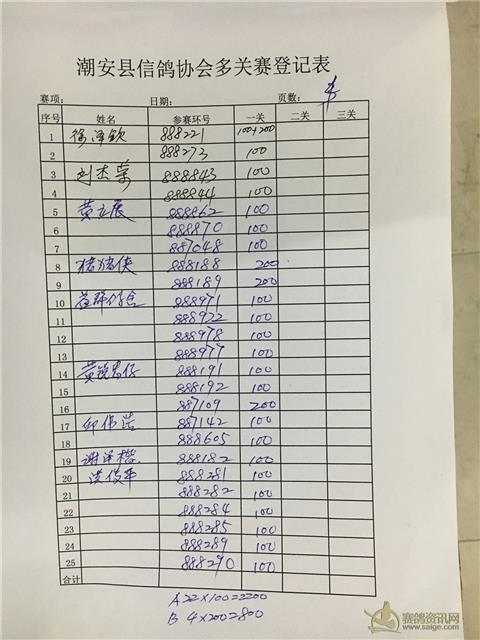 潮安县信鸽协会多关赛登记表
赛项: 日期: 页数:
序号 姓名 参赛环号 一关 二关 三关
1 徐泽钦 888221 100+200
2 888273 100
3 刘杰荣 888843 100
4 888844 100
5 黄立展 888862 100
6 888870 100
7 887048 100
8 猪猪侠 888188 200
9 888189 200
10 888971 100
11 888972 100
12 888978 100
13 888977 100
14 888191 100
15 888192 100
16 887109 200
17 887142 100
18 888605 100
19 888182 100
20 888281 100
21 888282 100
22 888284 100
23 888285 100
24 888289 100
25 888290 100
合计
A 22×100=2200
B 4×200=800
赛鸽资讯网
www.saige.com